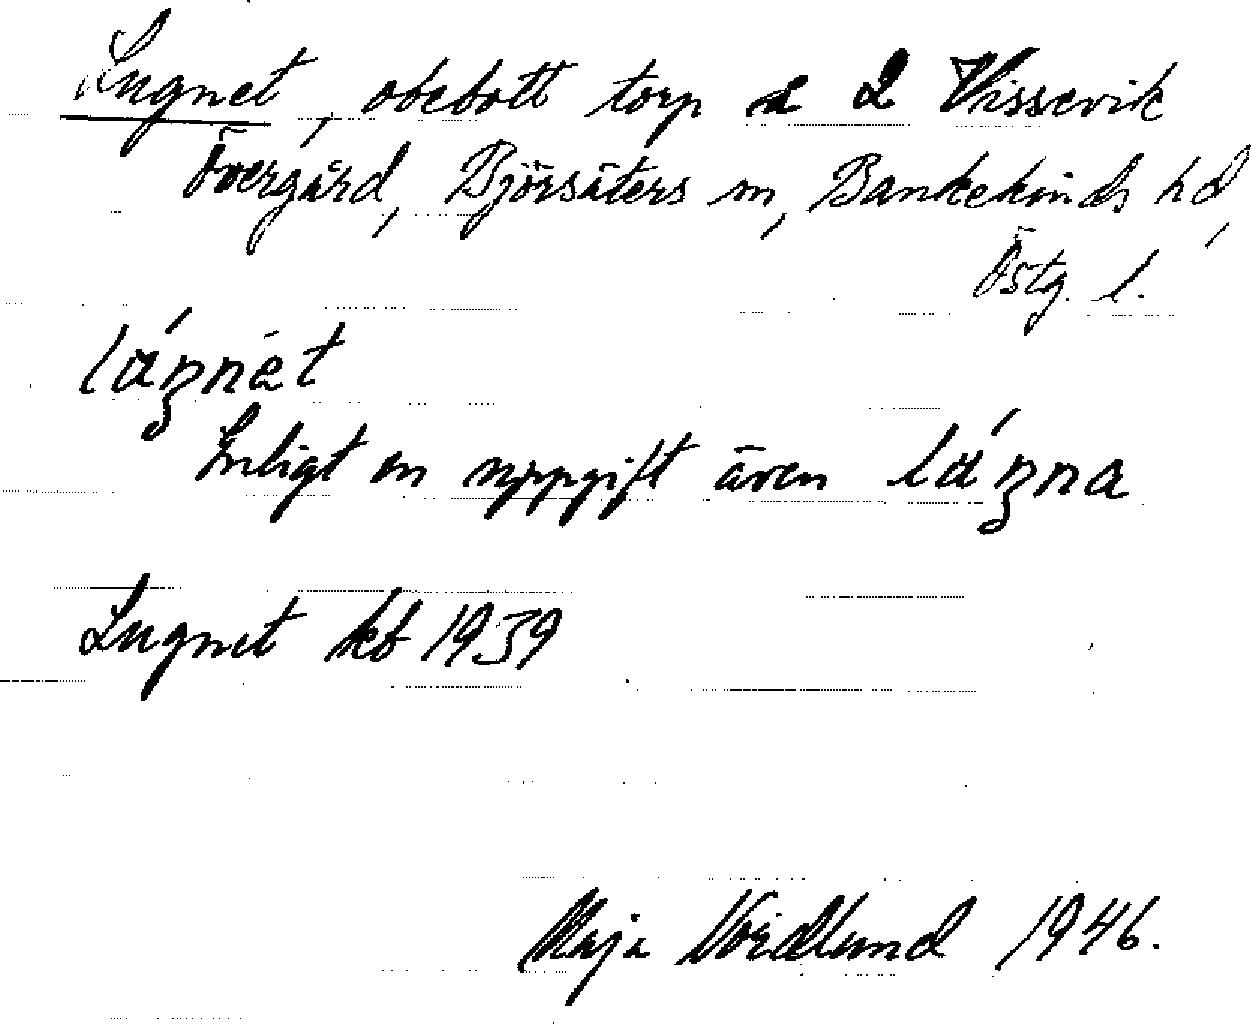 Lugnet, obebott torp u 2 Vissevik
Övergård, Björsäters sn, Bankekinds hd,
Östg. l.
láŋnet
Enligt en uppgift även láŋna
Lugnet kb 1939
Maja Nordlund 1946.